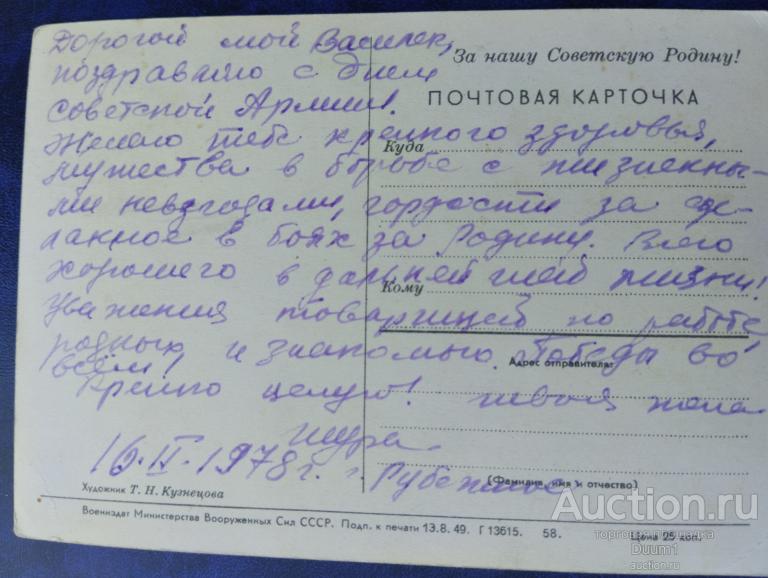 Дорогой мой Василек,
поздравляю с Днем
советской Армии!
Желаю тебе крепкого здоровья,
мужества в борьбе с жизненны-
ми невзгодами, гордости за сде-
ланное в боях за Родину. Всего
хорошего в дальнейшей жизни!
Уважения товарищей по работе
родных и знакомых. Победы во
всем!
Крепко целую! твоя жена
Шура.
16.II.1978г. г. Рубежное
За нашу Советскую Родину!
ПОЧТОВАЯ КАРТОЧКА
Куда
Кому
Адрес отправителя:
(Фамилия, имя и отчество)
Художник Т. Н. Кузнецова
Воениздат Министерства Вооруженных Сил СССР. Подп. к печати 13.8. 49. Г 13615. 58. Цена 25 коп.
Auction.ru
торговая площадка
Duum1
auction.ru